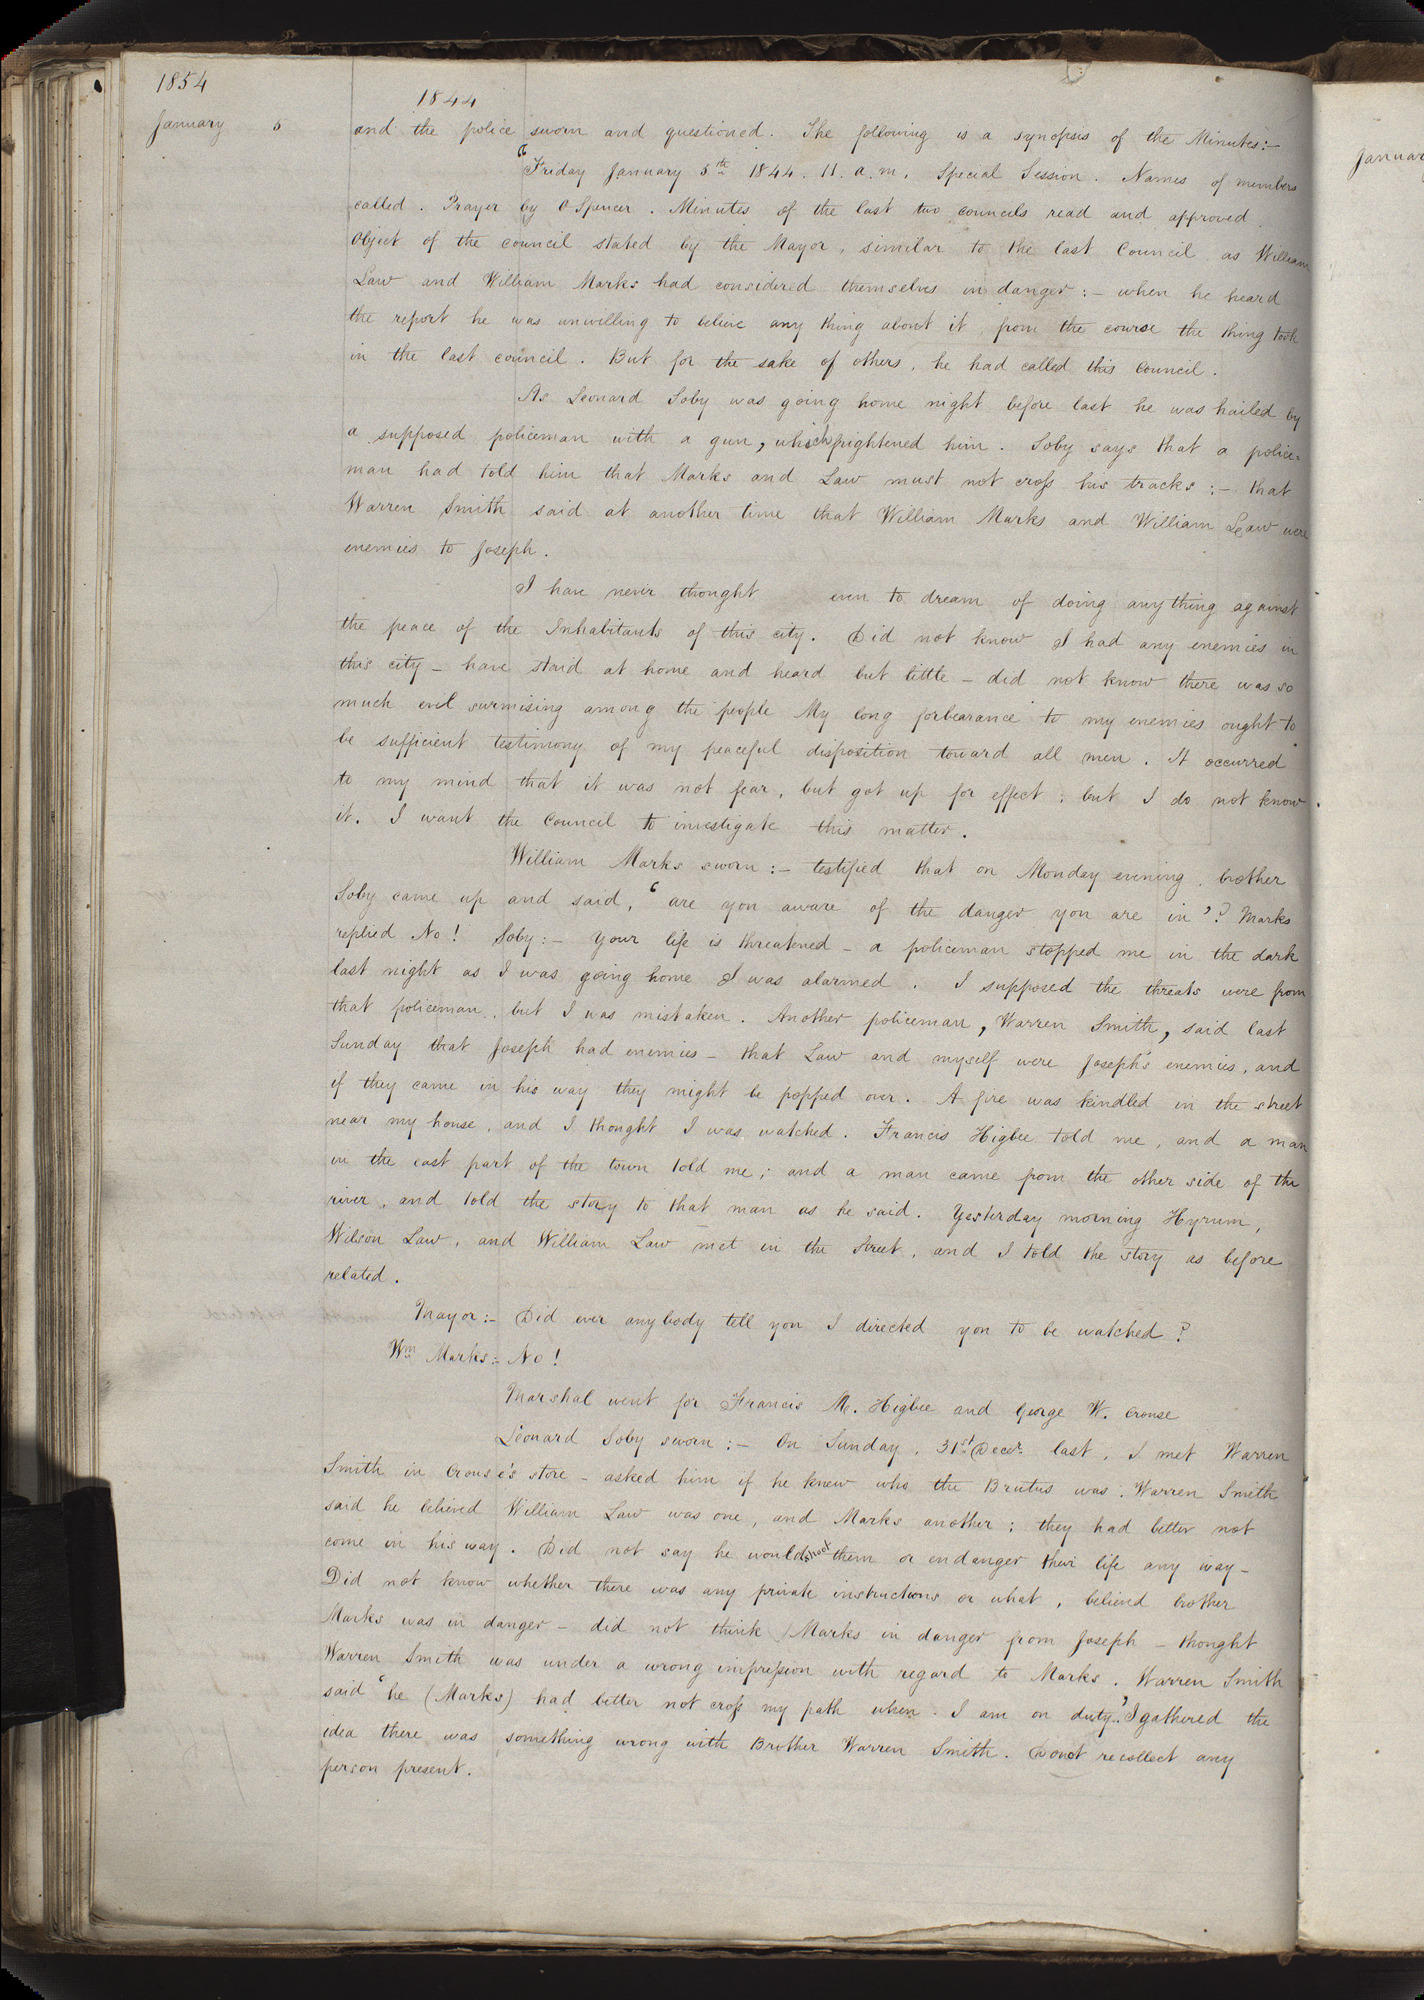 1854
1844
January 5
and the police sworn and questioned. The following is a synopsis of the Minutes:–
"Friday January 5th 1844. 11. a.m. Special Session. Names of members
called. Prayer by O Spencer. Minutes of the last two councils read and approved.
Object of the council stated by the Mayor, similar to the last Council, as William
Law and William Marks had considered themselves in danger:– when he heard
the report he was unwilling to believe any thing about it, from the course the thing took
in the last council. But for the sake of others, he had called this Council.
As Leonard Soby was going home night before last he was hailed by
a supposed policeman with a gun, which frightened him. Soby says that a police-
man had told him that Marks and Law must not cross his tracks:– that
Warren Smith said at another time that William Marks and William Law were
enemies to Joseph.
I have never thought even to dream of doing anything against
the peace of the Inhabitants of this city. Did not know I had any enemies in
this city – have staid at home and heard but little – did not know there was so
much evil surmising among the people My long forbearance to my enemies ought to
be sufficient testimony of my peaceful disposition toward all men. It occurred
to my mind that it was not fear, but got up for effect; but I do not know
it. I want the Council to investigate this matter.
William Marks sworn:– testified that on Monday evening, brother
Soby came up and said, 'are you aware of the danger you are in'? Marks
replied No! Soby:– Your life is threatened – a policeman stopped me in the dark
last night as I was going home I was alarmed. I supposed the threats were from
that policeman, but I was mistaken. Another policeman, Warren Smith, said last
Sunday that Joseph had enemies – that Law and myself were Joseph's enemies, and
if they came in his way they might be popped over. A fire was kindled in the street
near my house, and I thought I was watched. Francis Higbee told me, and a man
in the east part of the town told me; and a man came from the other side of the
river, and told the story to that man as he said. Yesterday morning Hyrum,
Wilson Law, and William Law met in the street, and I told the story as before
related.
Mayor:– Did ever anybody tell you I directed you to be watched?
Wm Marks:– No!
Marshal went for Francis M. Higbee and George W. Crouse
Leonard Soby sworn:– On Sunday, 31st Decr. last, I met Warren
Smith in Crouse's store – asked him if he knew who the Brutus was. Warren Smith
said he believed William Law was one, and Marks another; they had better not
come in his way. Did not say he would shoot them or endanger their life any way –
Did not know whether there was any private instructions or what, believed brother
Marks was in danger – did not think Marks in danger from Joseph – thought
Warren Smith was under a wrong impression with regard to Marks. Warren Smith
said 'he (Marks) had better not cross my path when I am on duty.' I gathered the
idea there was something wrong with Brother Warren Smith. Do not recollect any
person present.
January